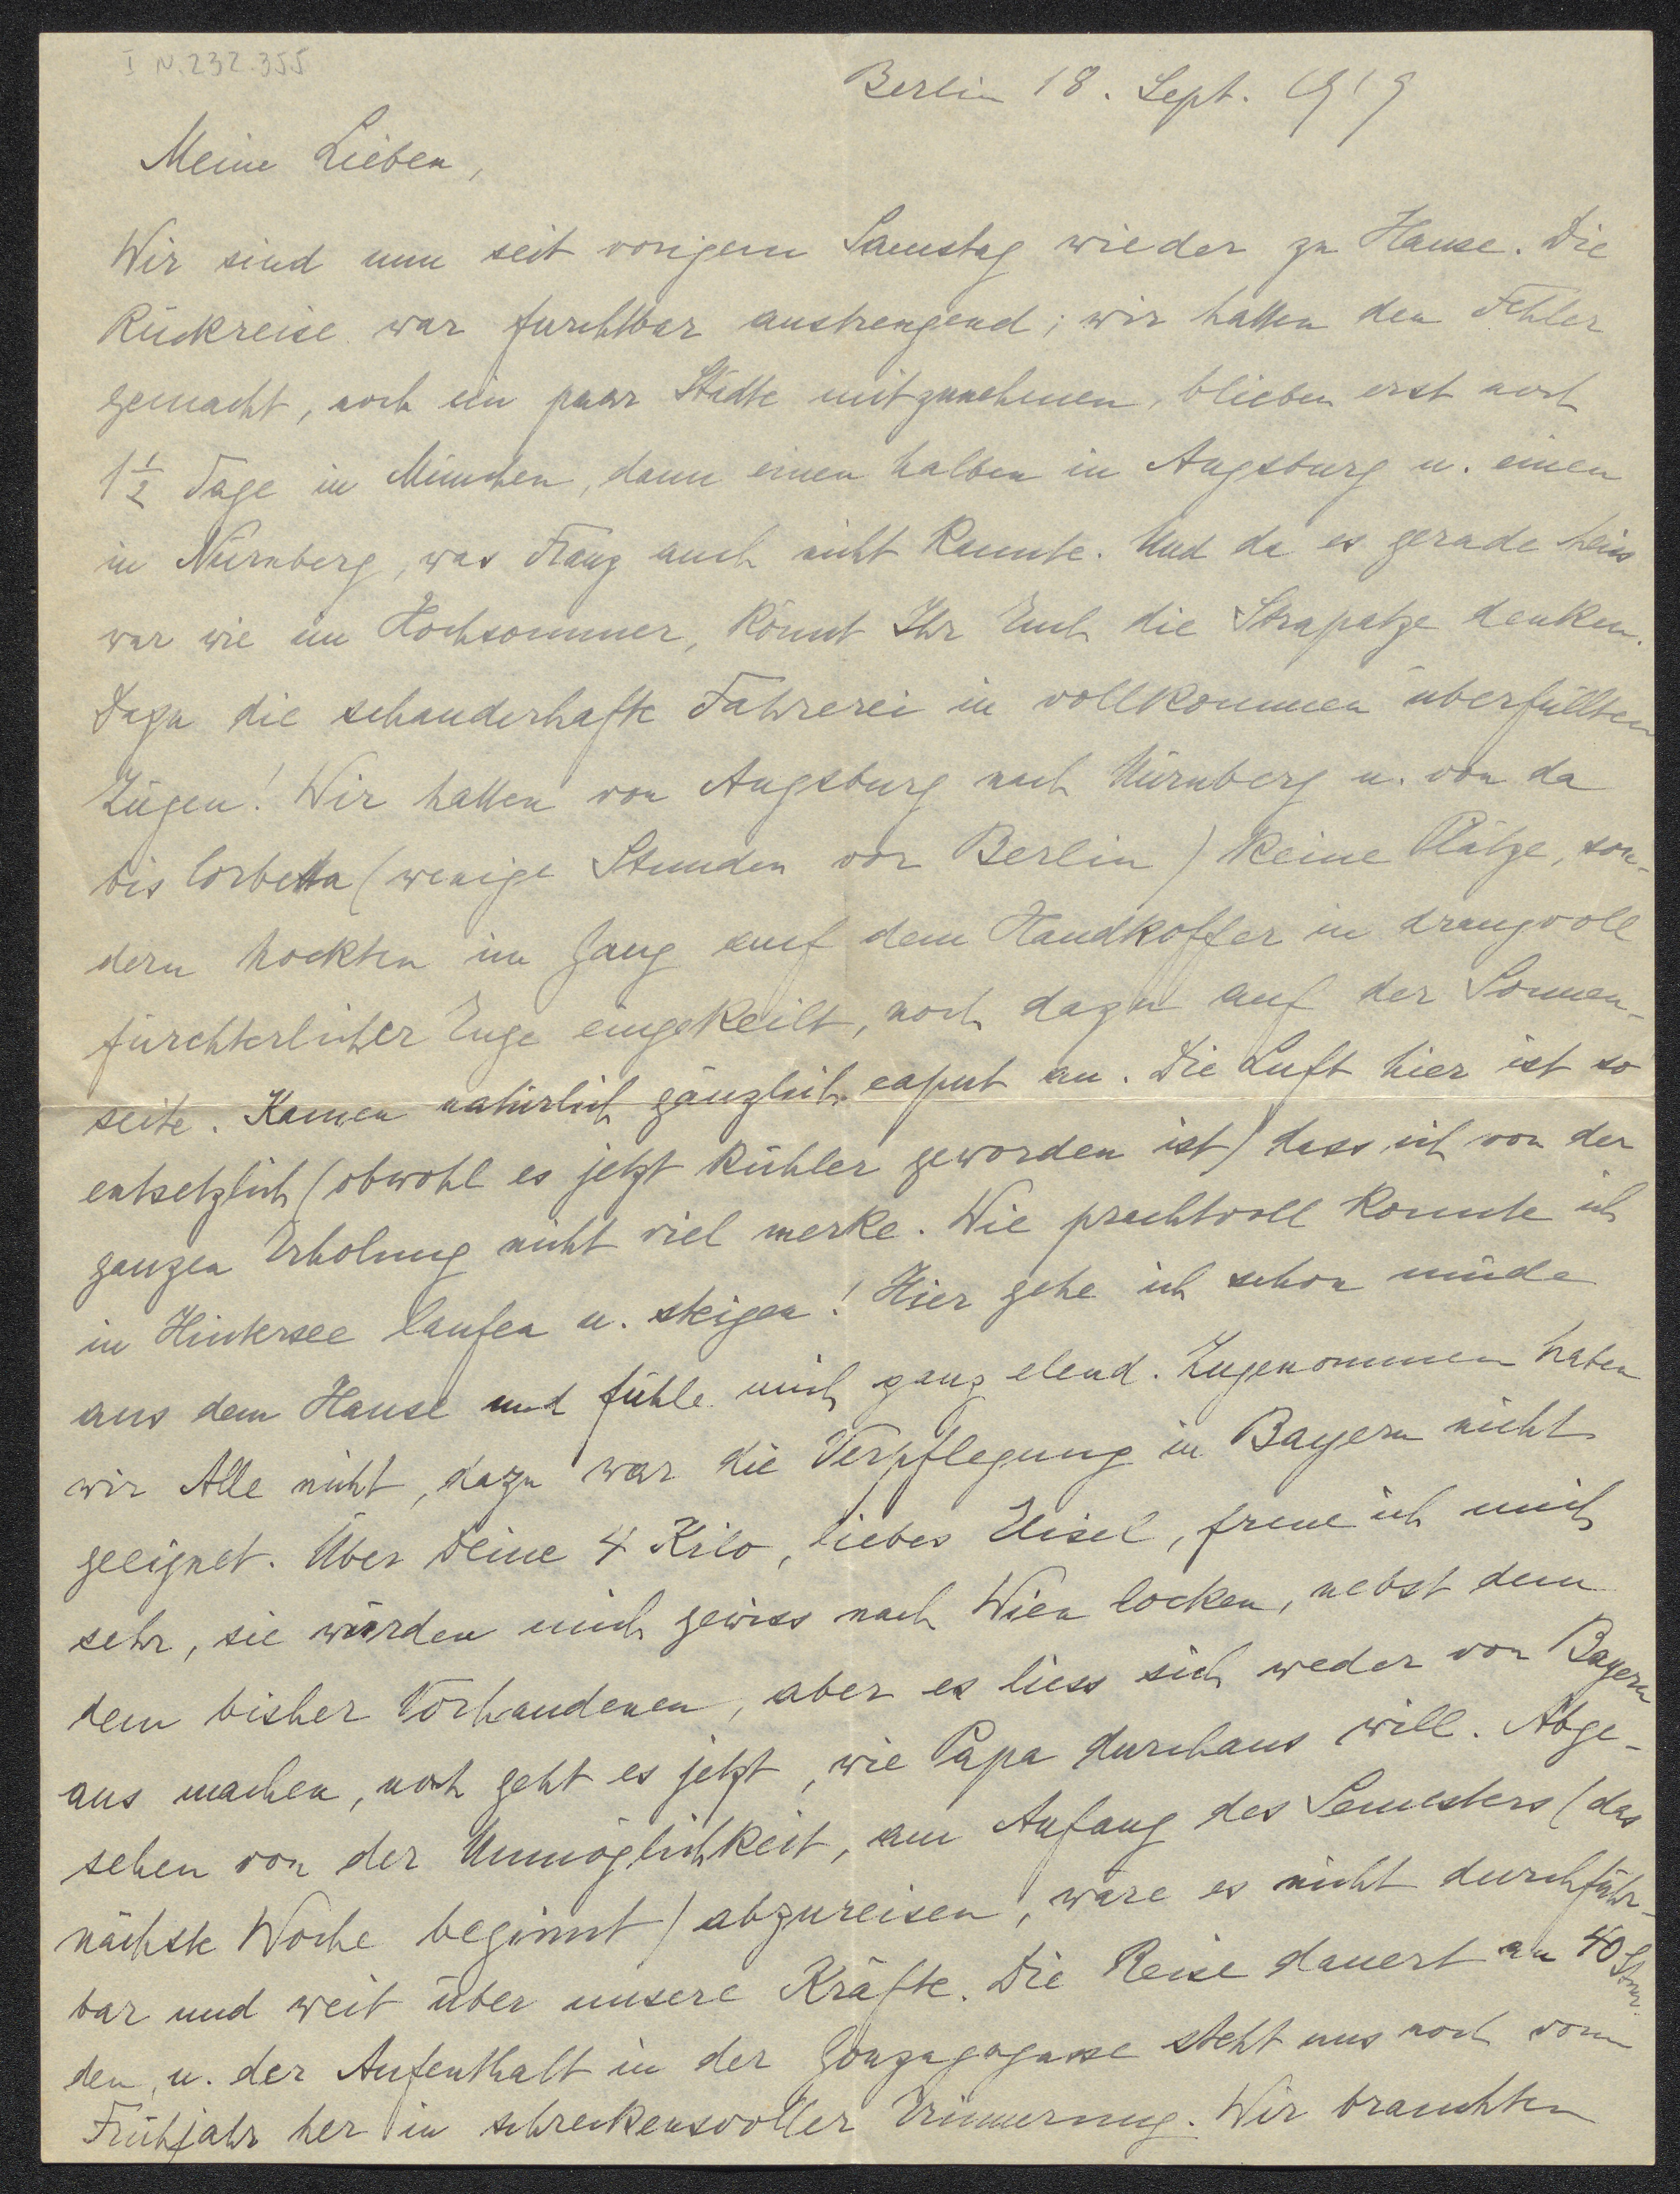 I N. 232.355
Berlin 18. Sept. 1919
Meine Lieben,
Wir sind nun seit vorigem Samstag wieder zu Hause. Die
Rückreise war furchtbar anstrengend; wir hatten den Fehler
gemacht, noch ein paar Städte mitzunehmen, blieben erst noch
1 1/2 Tage in München, dann einen halben in Augsburg u. einen
in Nürnberg, was Franz auch nicht kannte. Und da es gerade heiss
war wie im Hochsommer, könnt Ihr Euch die Strapatze denken.
Dazu die schauderhafte Fahrerei in vollkommen überfüllten
Zügen! Wir hatten von Augsburg nach Nürnberg u. von da
bis Corbetta (wenige Stunden vor Berlin) keine Plätze, son-
dern hockten im Gang auf dem Handkoffer in drangvoll
fürchterlicher Enge eingekeilt, noch dazu auf der Sonnen-
seite. Kamen natürlich gänzlich caput an. Die Luft hier ist so
entsetzlich (obwohl es jetzt kühler geworden ist) dass ich von der
ganzen Erholung nicht viel merke. Wie prachtvoll konnte ich
in Hintersee laufen u. steigen! Hier gehe ich schon müde
aus dem Hause und fühle mich ganz elend. Zugenommen haben
wir Alle nicht, dazu war die Verpflegung in Bayern nicht
geeignet. Über Deine 4 Kilo, liebes Lisel, freue ich mich
sehr, sie würden mich gewiss nach Wien locken, nebst dem
dem bisher Vorhandenen, aber es liess sich weder von Bayern
aus machen, noch geht es jetzt, wie Papa durchaus will. Abge-
sehen von der Unmöglichkeit, am Anfang des Semesters (das
nächste Woche beginnt) abzureisen, wäre es nicht durchführ-
bar und weit über unsere Kräfte. Die Reise dauert an 40 Stun-
den, u. der Aufenthalt in der Gonzagagasse steht uns noch vom
Frühjahr her in schreckensvoller Erinnerung. Wir brauchten